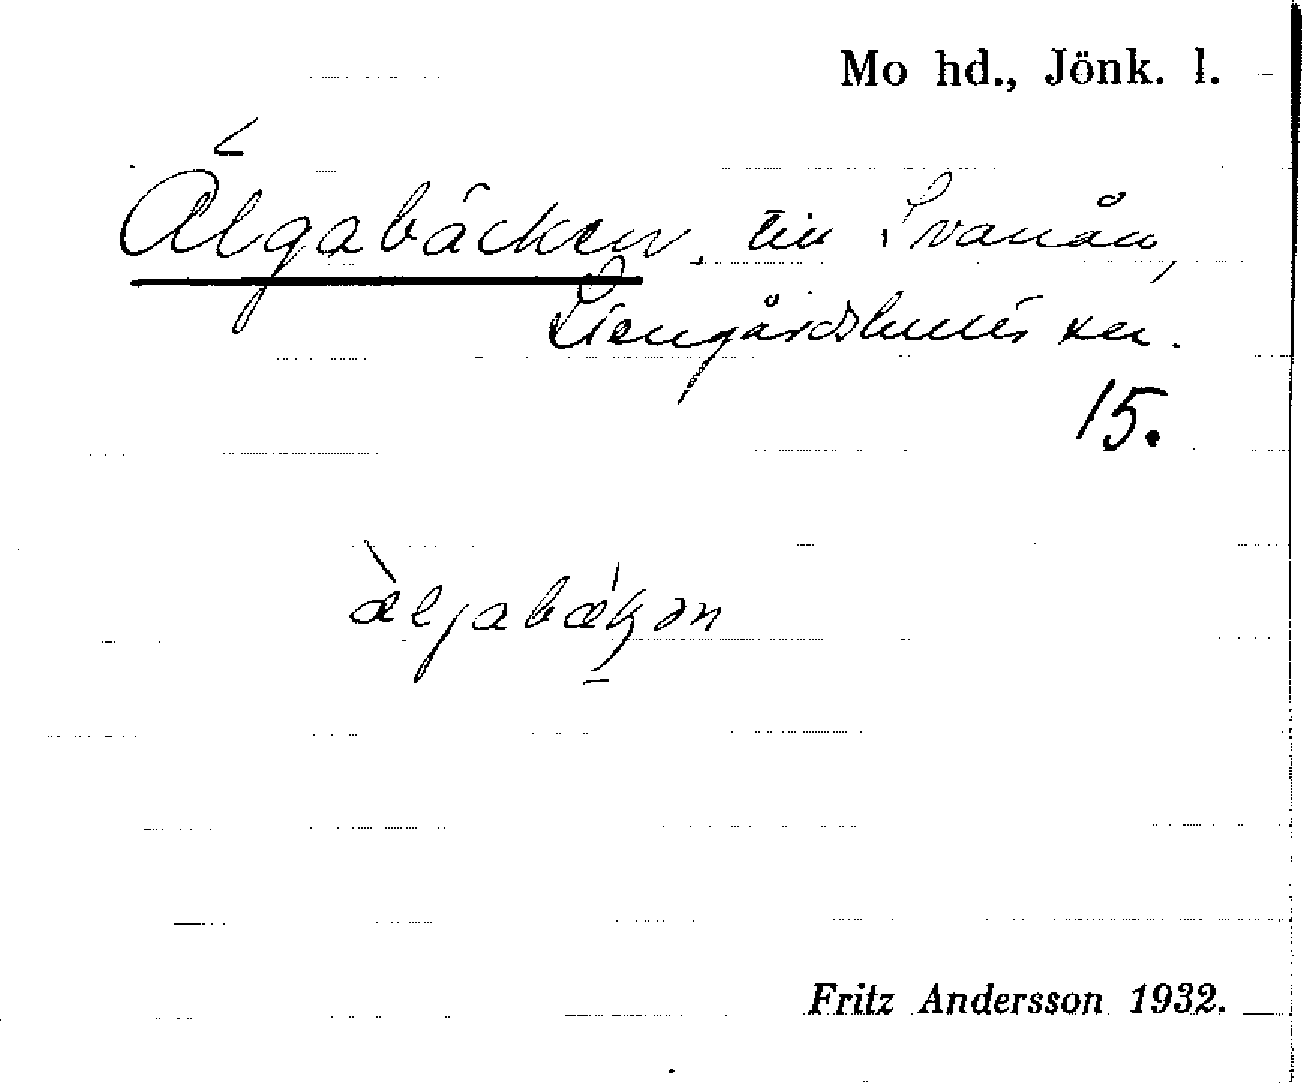 Mo hd., Jönk. l.
Älgabäcken, till Svanån,
Stengårdshults sn.
15.
æ̀ljabǽkən
Fritz Andersson 1932.